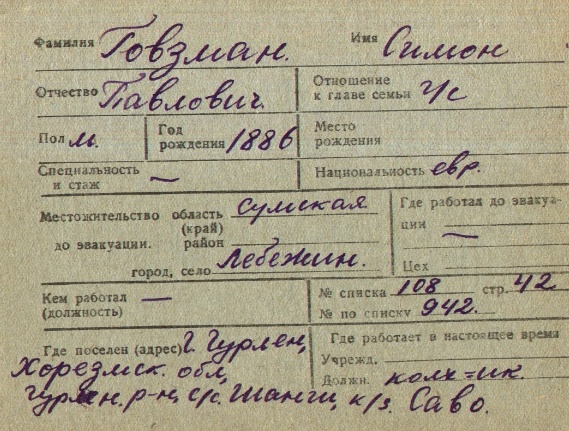 Фамилия Говзман. Имя Симон
Отчество Павлович. Отношение к главе семьи г/с
Пол м. Год рождения 1886 Место рождения
Специальность и стаж — Национальность евр.
Местожительство до эвакуации. область (край) Сумская Где работал до эвакуации —
район
город, село Лебежин. Цех
Кем работал (должность) — № списка 108 стр. 42
№ по списку 942.
Где поселен (адрес) г. Гурлен, Где работает в настоящее время
Хорезмск. обл, Учрежд.
Гурлен. р-н, с/с. Шанги, к/з. Саво. Должн. колх=ик.